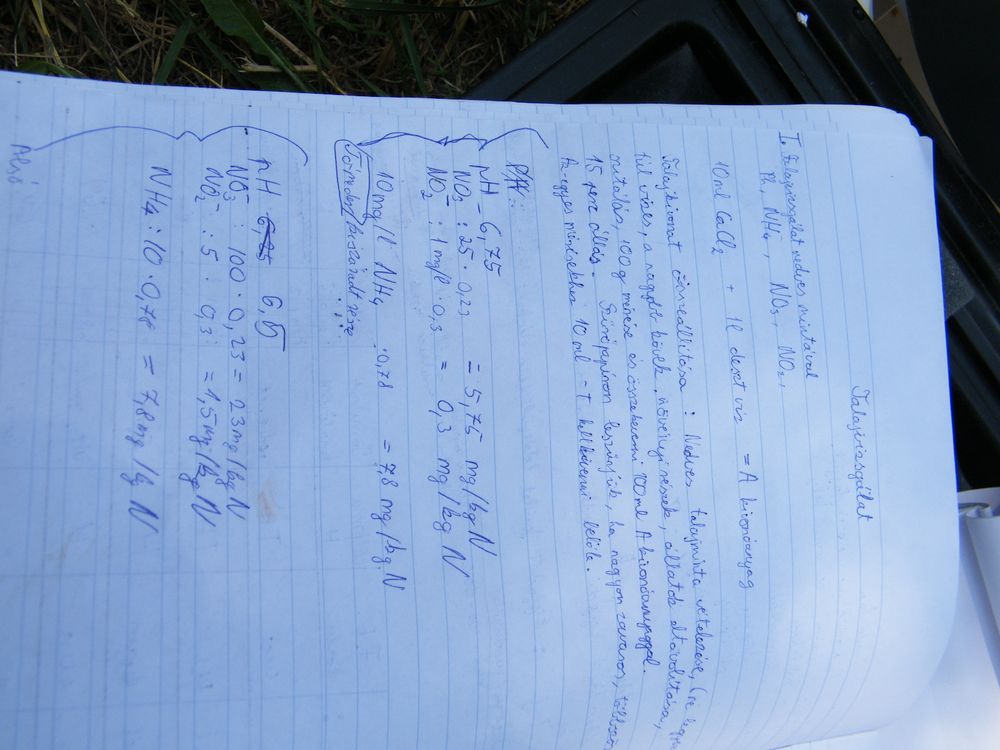 Talajvizsgálat
I. Talajvizsgálat nedves mintával
Ph, NH4, NO3, NO2,
10ml CaCl2 + 1l deszt víz = A kivonóanyag
Talajkivonat összeállítása : Nedves talajminta vételezése, (ne legyen
túl vizes, a nagyobb kövek, növényi részek, állatok eltávolítása,
100g mérése és összekeverni 100ml A kivonóanyaggal.
15 perc állás. Szűrőpapíron leszűrjük, ha nagyon zavaros, többször
Az egyes mérésekhez 10 ml -t kell kivenni belőle.
pH - 6,75
NO3 : 25 · 0,23 = 5,75 mg/kg N
NO2 : 1 mg/l · 0,3 = 0,3 mg/kg N
10 mg/l NH4 · 0,78 = 7,8 mg/kg N
része
pH 6,75 6,5
NO3 : 100 · 0,23 = 23 mg/kg N
NO2 : 5 · 0,3 = 1,5 mg/kg N
NH4 : 10 · 0,78 = 7,8 mg/kg N
Alsó